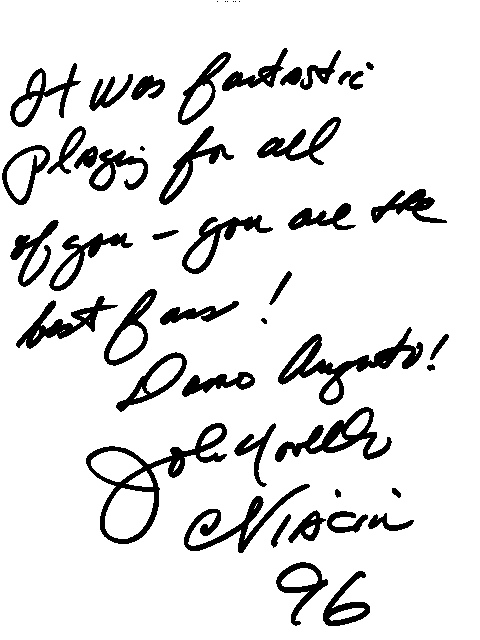 It was fantastic
playing for all
of you - you are the
best fans!
Domo Arigato!
John Novello
Niacin
96